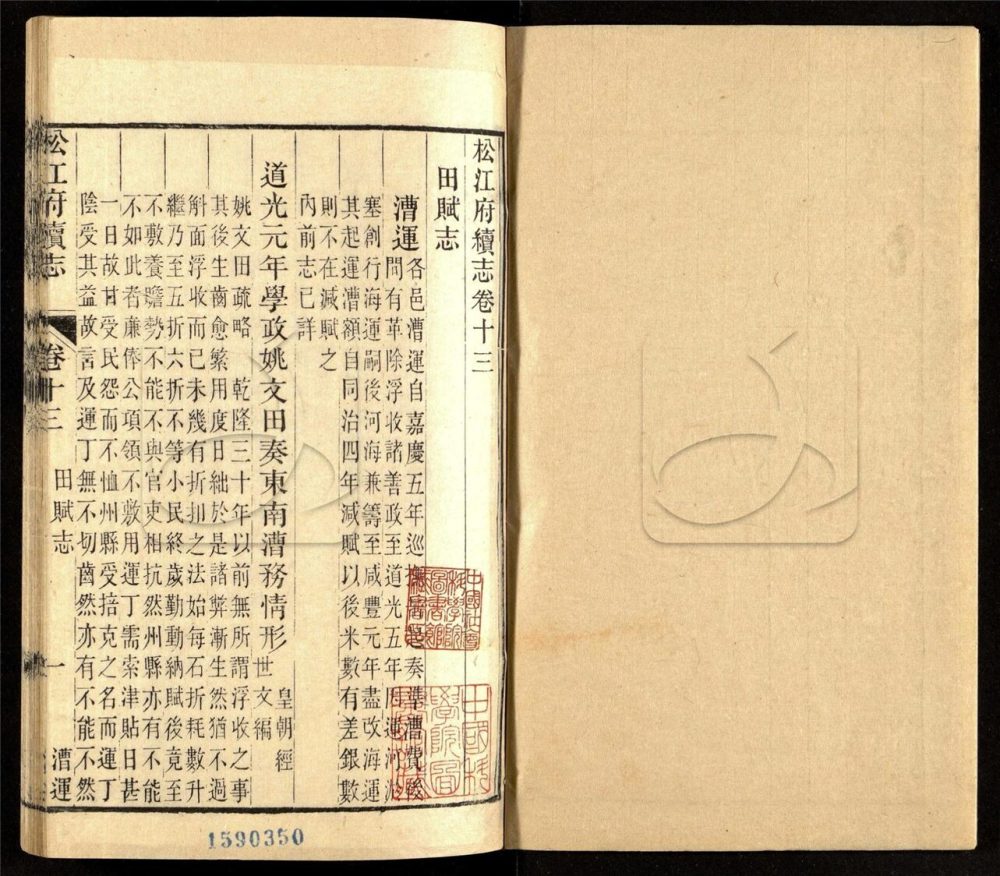 松江府續志卷十三
田賦志
漕運各邑漕運自嘉慶五年巡撫 奏準漕費後
間有革除浮收諸善政至道光五年因運河淤
塞創行海運嗣後河海兼籌至咸豐元年盡改海運
其起運漕額自同治四年減賦以後米數有差銀數
則不在減賦之
內前志已詳
道光元年學政姚文田奏東南漕務情形皇朝經
世文編
姚文田疏略 乾隆三十年以前無所謂浮收之事
其後生齒愈繁用度日絀於是諸弊漸生然猶不過
斛面浮收而已未幾有折扣之法始每石折耗數升
繼乃至五折六折不等小民終歲勤動納賦後竟至
不敷養贍勢不能不與官吏相抗然州縣亦有不能
不如此者廉俸公項領不敷用運丁需索津貼日甚
一日故甘受民怨而不恤州縣受掊克之名而運丁
陰受其益故言及運丁無不切齒然亦有不能不然
松江府續志
卷十三
田賦志
一
漕運
中國科
學院圖
1590350